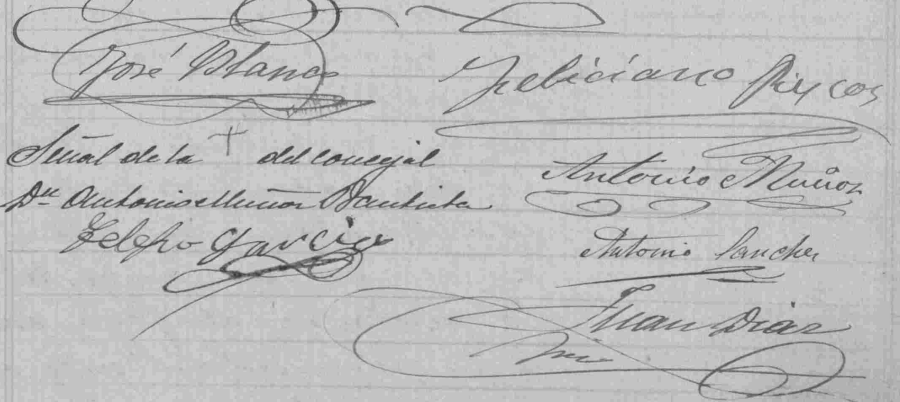 José Blanco
Feliciano
Señal de la + del concejal
Dn Antonio Muñoz Bautista
Antonio Muñoz
Telesfro García
Antonio Sanchez
Juan Diaz